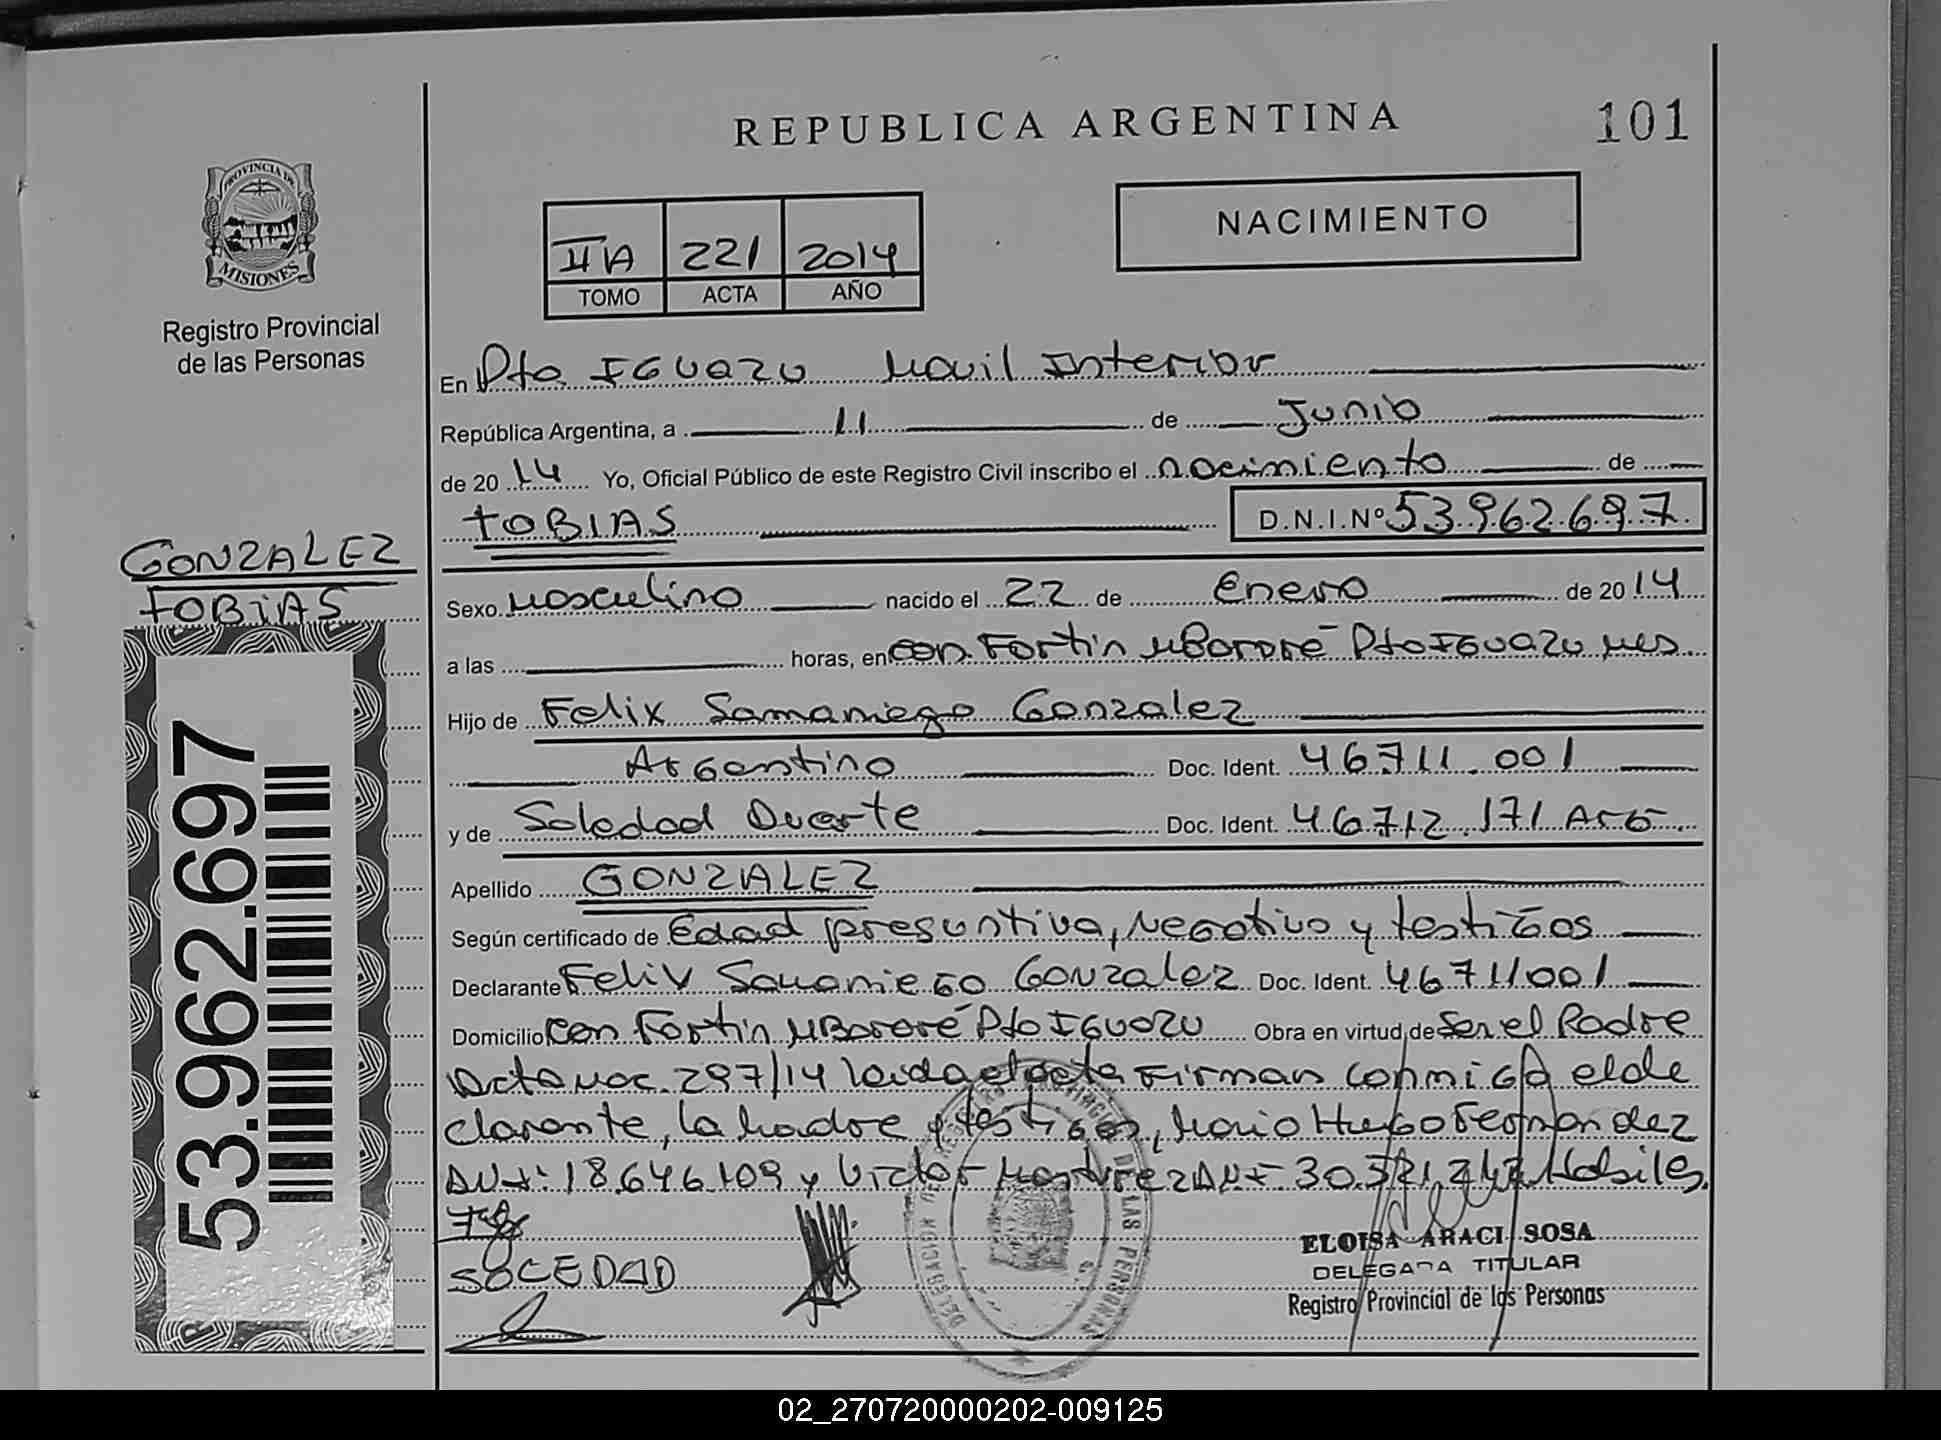 REPUBLICA ARGENTINA
101
PROVINCIA DE
MISIONES
Registro Provincial
de las Personas
NACIMIENTO
IIA 221 2014
TOMO ACTA AÑO
En Pto IGUAZU Movil Interior
República Argentina, a 11 de Junio
de 2014 Yo, Oficial Público de este Registro Civil inscribo el nacimiento de
TOBIAS D.N.I.Nº 53962697
GONZALEZ
TOBIAS
Sexo Masculino nacido el 22 de Enero de 2014
a las horas, en com Fortin MBororé Pto IGUAZU MNES
Hijo de Felix Samaniego Gonzalez
Argentino Doc. Ident. 46711.001
y de Soledad Duarte Doc. Ident. 46712.171 ARG
Apellido GONZALEZ
Según certificado de Edad presuntiva, Negativo y testigos
Declarante Felix Samaniego Gonzalez Doc. Ident. 46711001
Domicilio com Fortin MBororé Pto IGUAZU Obra en virtud de Ser el Padre
Acta Nac. 297/14 leida el acta Firman conmigo el de
clarante, la madre y testigos, Mario Hugo Fernandez
DNI: 18.646.109 y Victor DNI 30. Habiles.
53.962.697
SOLEDAD
DELEGACION
DE LAS PERSONAS
ELOISA ARACI SOSA
DELEGADA TITULAR
Registro Provincial de las Personas
02_270720000202-009125